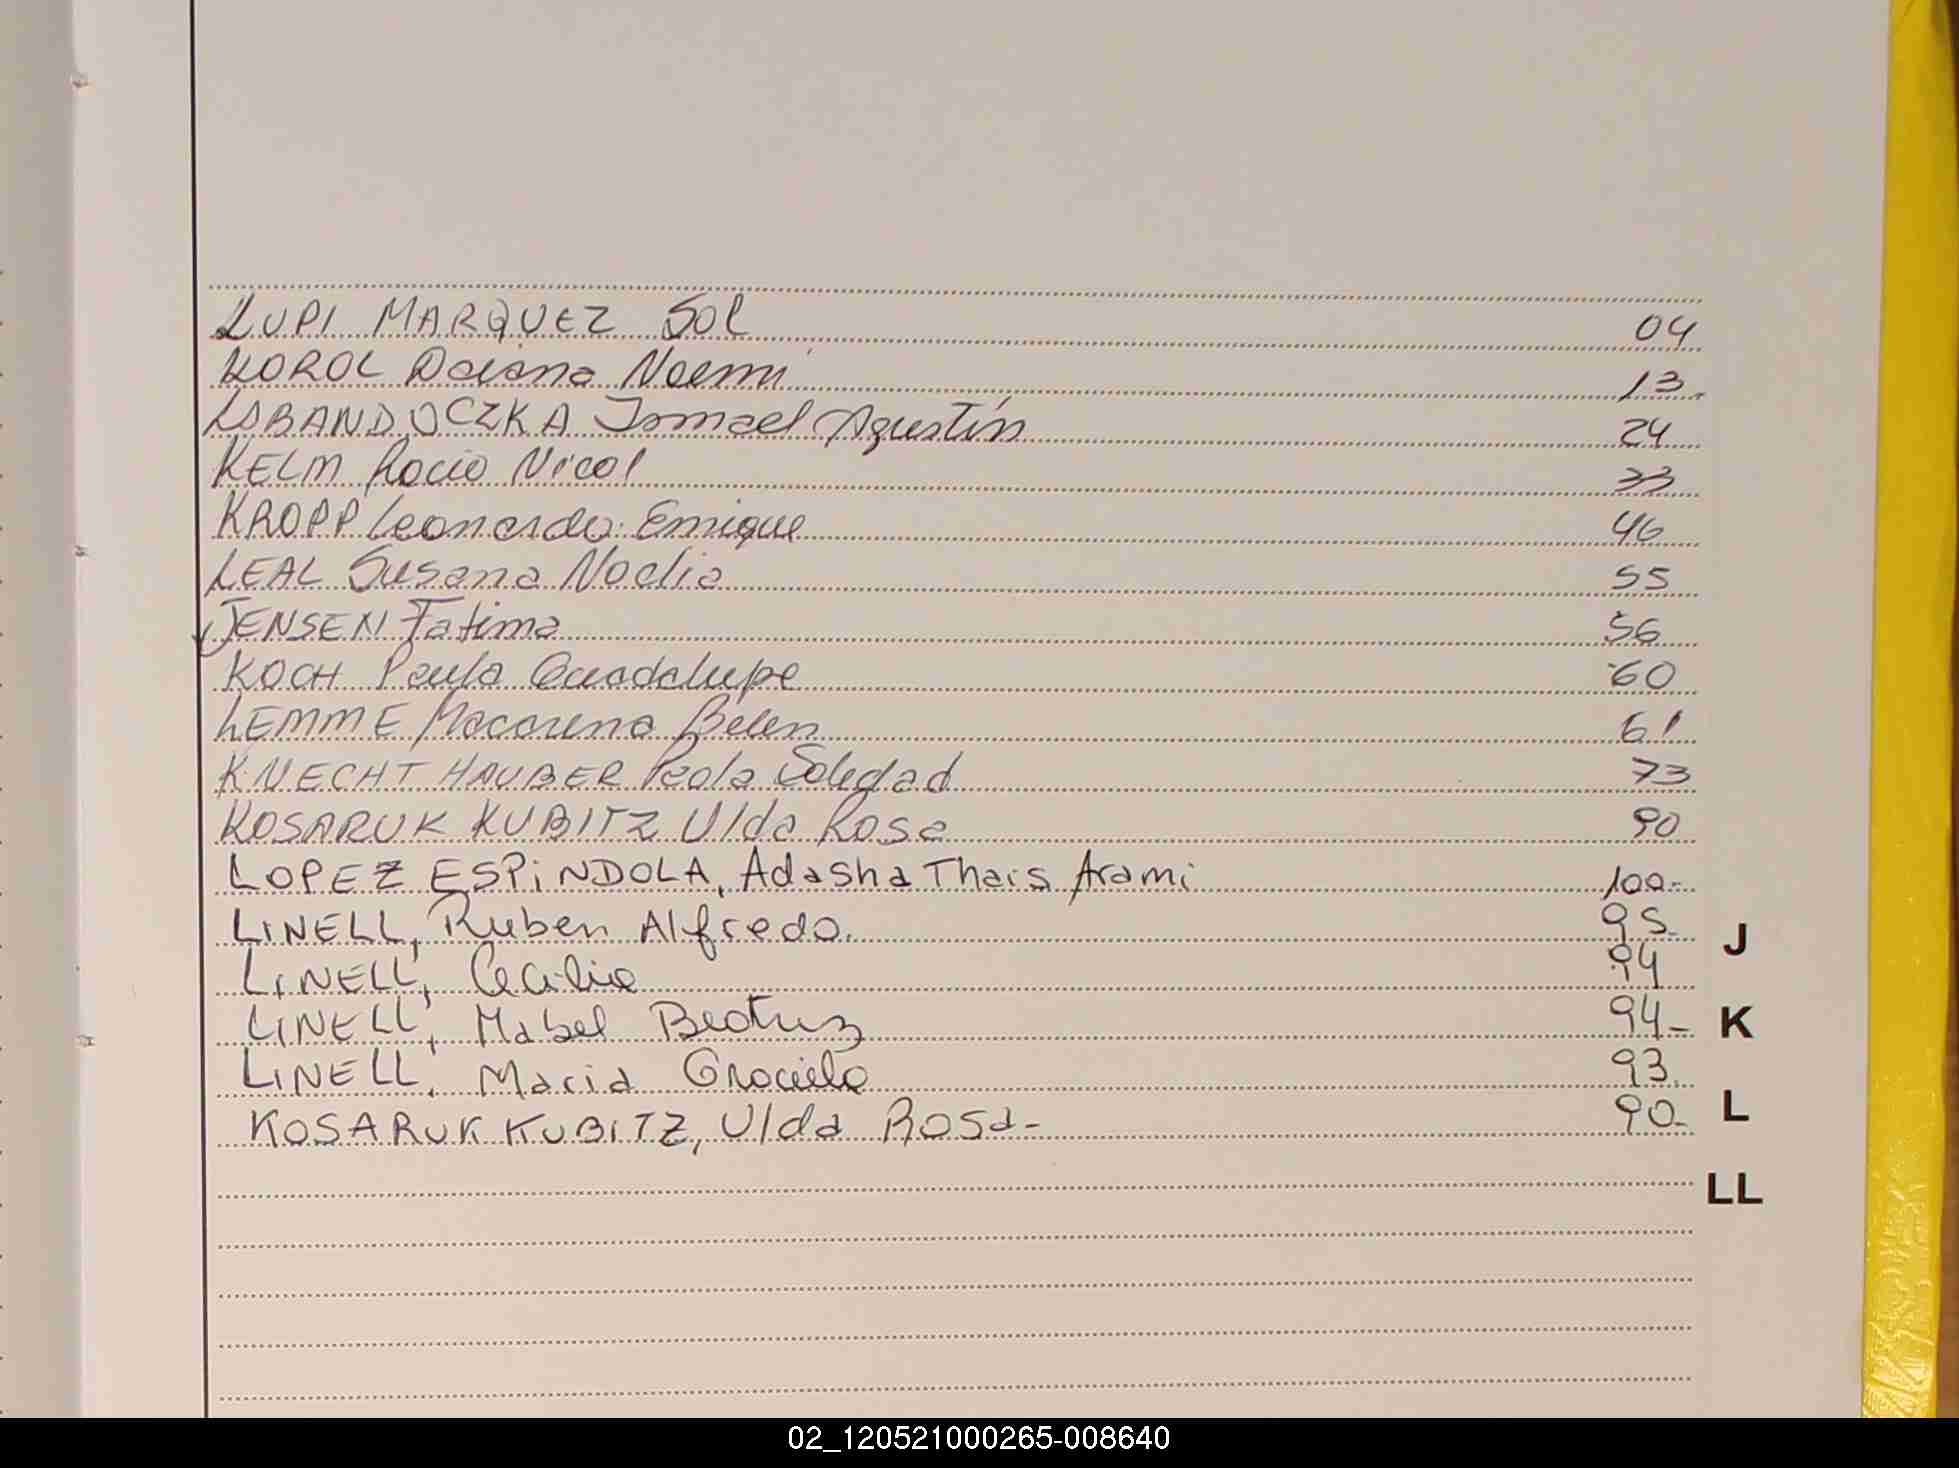 LUPI MARQUEZ Sol 04
KOROL Daiana Noemi 13.
LOBANDOCZKA Ismael Agustín 24
KELM Rocio Nicol 33
KROPP Leonardo Enrique 46
LEAL Susana Noelia 55
JENSEN Fatima 56
KOCH Paula Guadalupe 60
LEMME Macarena Belen 61
KNECHT HAUBER Paola Soledad 73
KOSARUK KUBITZ Ulda Rosa 90
LOPEZ ESPiNDOLA, Adasha Thais Arami 100-
LINELL, Ruben Alfredo. 95-
J
LINELL, Cecilia 94
LINELL, Mabel Beatriz 94-
K
LINELL, Maria Graciela 93.
KOSARUK KUBITZ, Ulda Rosa- 90-
L
LL
02_120521000265-008640